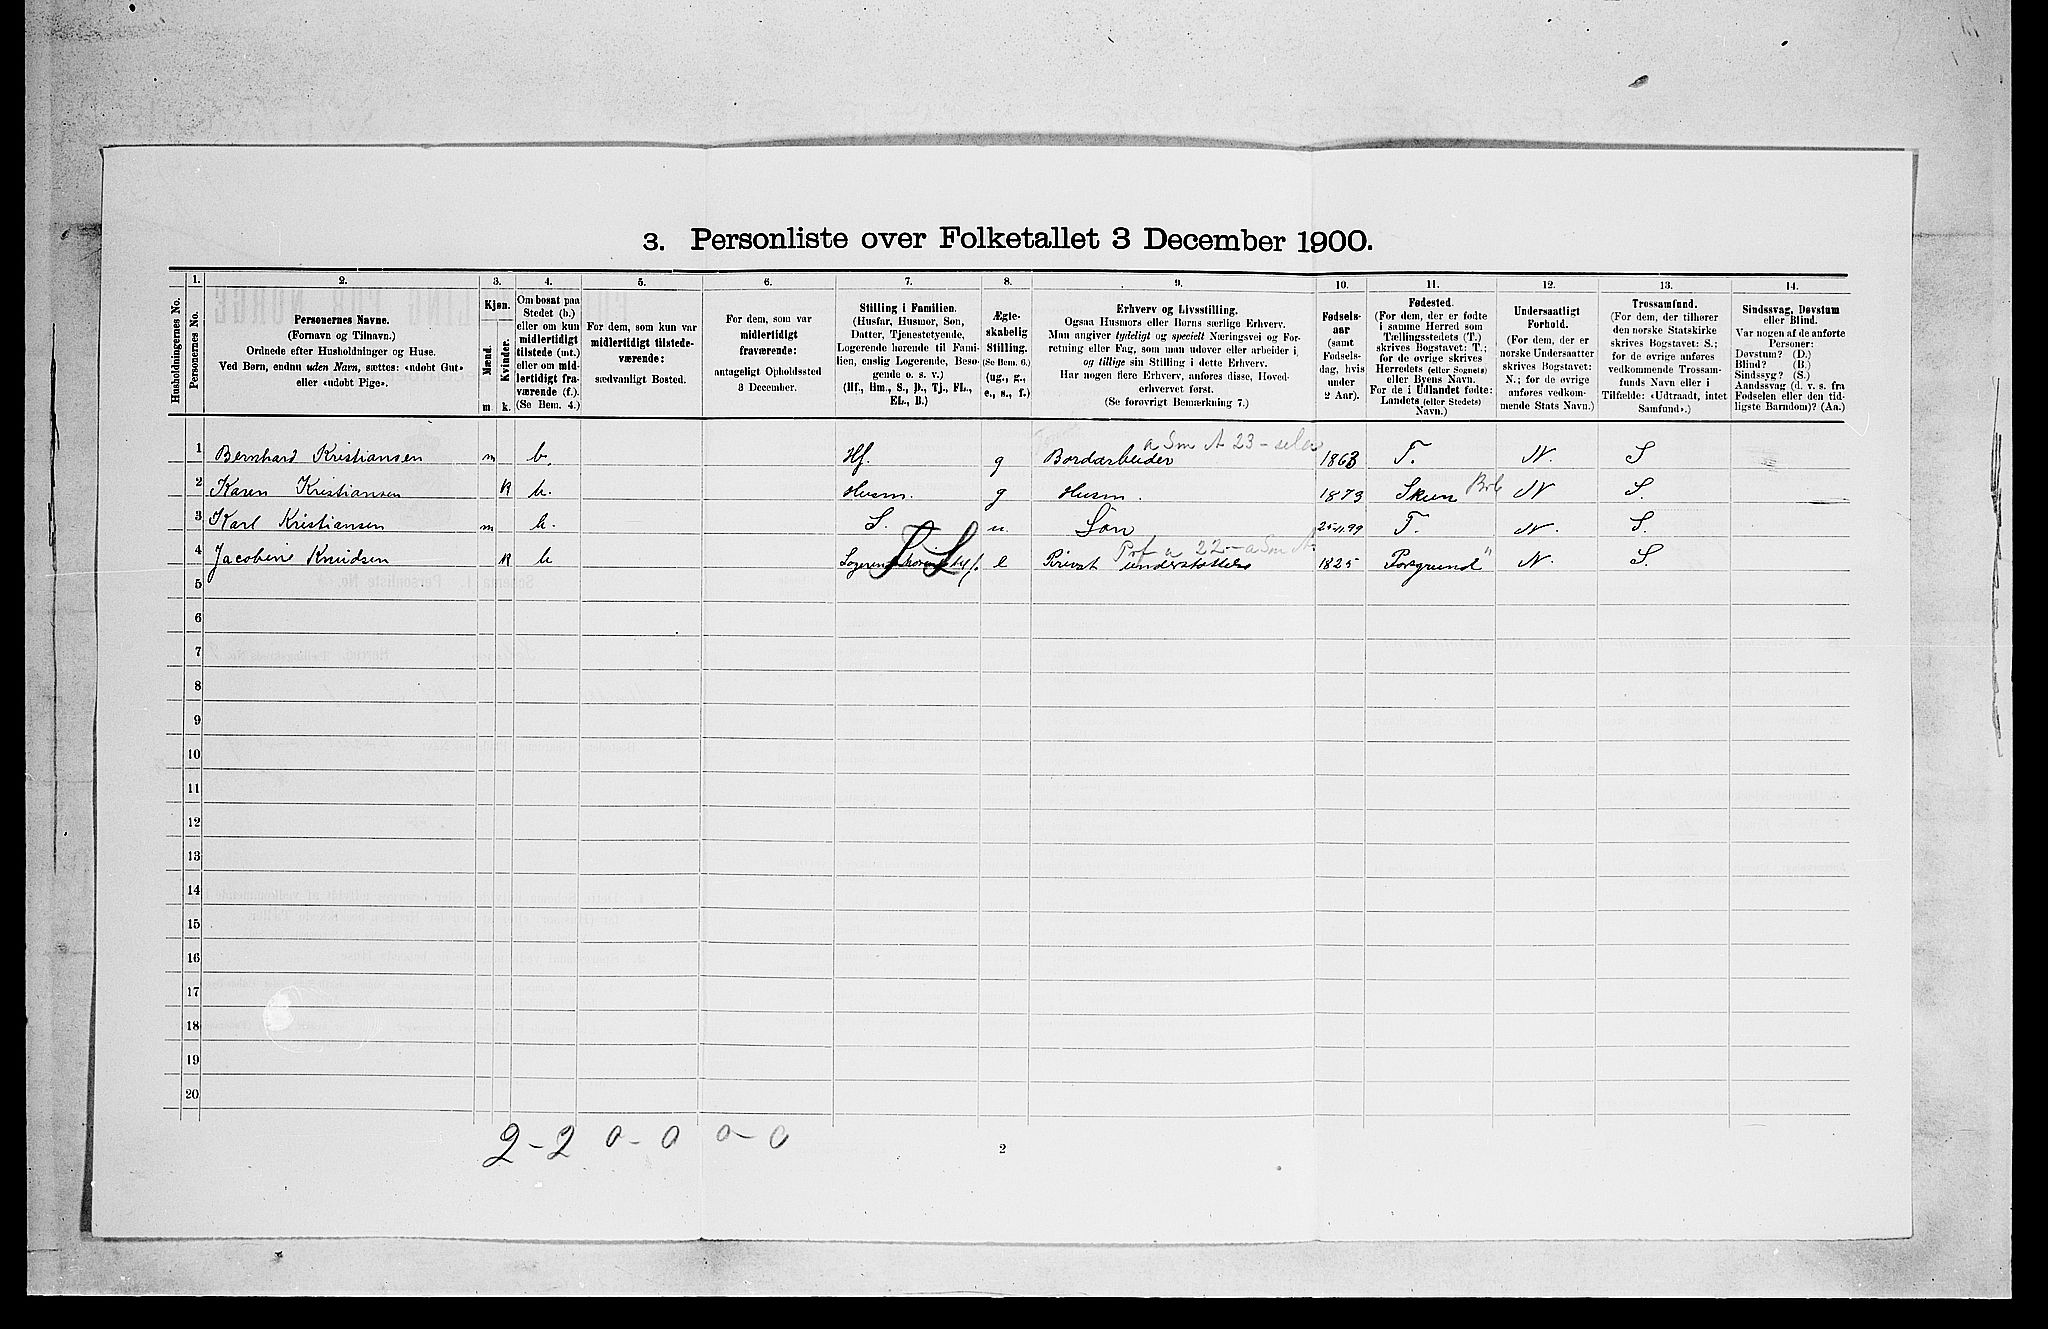 3. Personliste over Folketallet 3 December 1900.
Husholdningernes No.
1.
Personernes No.
2.
Personernes Navne.
(Fornavn og Tilnavn.)
Ordnede efter Husholdninger og Huse.
Ved Børn, endnu uden Navn, sættes: «udøbt Gut»
eller «udøbt Pige».
3.
Kjøn.
Mænd.
Kvinder.
m
k.
4.
Om bosat paa
Stedet (b.)
eller om kun
midlertidigt
tilstede (mt.)
eller om mid-
lertidigt fra-
værende (f.).
(Se Bem. 4.)
5.
For dem, som kun var
midlertidigt tilstede-
værende:
sædvanligt Bosted.
6.
For dem, som var
midlertidigt
fraværende:
antageligt Opholdssted
3 December.
7.
Stilling i Familien.
(Husfar, Husmor, Søn,
Datter, Tjenestetyende,
Logerende hørende til Fami-
lien, enslig Logerende, Besø-
gende o. s. v.)
(Hf., Hm., S., D., Tj., FL.,
EL., B.)
8.
Ægte-
skabelig
Stilling.
(Se Bem. 6.)
(ug., g.,
e., s., f.)
9.
Erhverv og Livsstilling.
Ogsaa Husmors eller Børns særlige Erhverv.
Man angiver tydeligt og specielt Næringsvei og For-
retning eller Fag, som man udøver eller arbeider i,
og tillige sin Stilling i dette Erhverv.
Har nogen flere Erhverv, anføres disse, Hoved-
erhvervet først.
(Se forøvrigt Bemærkning 7.)
10.
Fødsels-
aar
(samt
Fødsels-
dag, hvis
under
2 Aar).
11.
Fødested.
(For dem, der er fødte
i samme Herred som
Tællingsstedets (T.)
skrives Bogstavet: T.;
for de øvrige skrives
Herredets (eller Sognets)
eller Byens Navn.
For de i Udlandet fødte:
Landets (eller Stedets)
Navn.)
12.
Undersaatligt
Forhold.
(For dem, der er
norske Undersaatter
skrives Bogstavet:
N.; for de øvrige
anføres vedkom-
mende Stats Navn.)
13.
Trossamfund.
(For dem, der tilhører
den norske Statskirke
skrives Bogstavet: S.;
for de øvrige anføres
vedkommende Trossam-
funds Navn eller i
Tilfælde: «Udtraadt, intet
Samfund».)
14.
Sindssvag, Døvstum
eller Blind.
Var nogen af de anførte
Personer:
Døvstum? (D.)
Blind? (B.)
Sindssyg? (S.)
Aandssvag (d. v. s. fra
Fødselen eller den tid-
ligste Barndom)? (Aa.)
a Sm A 23 -
1 Bernhard Kristiansen m b. Hf. g Bordarbeider 1863 T. N. S
2 Karen Kristiansen K b. Husm. g Husm. 1873 Skien N S.
3 Karl Kristiansen m b. S. u. Søn 25-11.99 T. N. S.
4 Jacobine Knudsen K b e Privat understøttelse 1825 Porsgrund N. S.
5
6
7
8
9
10
11
12
13
14
15
16
17
18
19
20
2-2 0-0 0-0
2